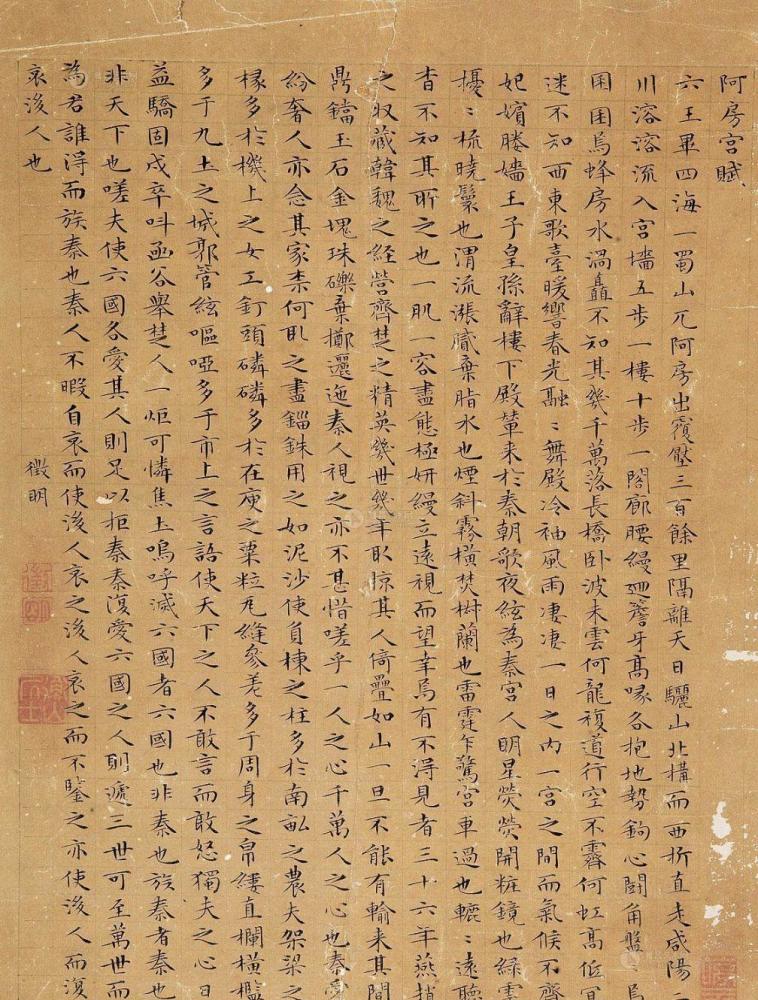 阿房宮賦
六王畢四海一蜀山兀阿房出覆壓三百餘里隔離天日驪山北構而西折直走咸陽
川溶溶流入宮墻五步一樓十步一閣廊腰縵廻簷牙高喙各抱地勢鉤心鬪角盤〻焉
囷囷焉蜂房水渦矗不知其幾千萬落長橋卧波未雲何龍複道行空不霽何虹高低冥
迷不知西東歌臺暖響春光融〻舞殿冷袖風雨凄凄一日之内一宮之間而氣候不齊
妃嬪媵嬙王子皇孫辭樓下殿輦来於秦朝歌夜絃為秦宮人明星熒熒開粧鏡也緑雲
擾〻梳曉鬟也渭流漲膩棄脂水也煙斜霧橫焚椒蘭也雷霆乍驚宮車過也轆〻遠聽
杳不知其所之也一肌一容盡態極妍縵立遠視而望幸焉有不得見者三十六年燕趙
之収藏韓魏之經營齊楚之精英幾世幾年取掠其人倚疊如山一旦不能有輸来其間
鼎鐺玉石金塊珠礫棄擲邐迤秦人視之亦不甚惜嗟乎一人之心千萬人之心也秦愛
紛奢人亦念其家柰何取之盡錙銖用之如泥沙使負棟之柱多於南畝之農夫架梁之
椽多於機上之女工釘頭磷磷多於在庾之粟粒瓦縫參差多于周身之帛縷直欄橫檻
多于九土之城郭管絃嘔啞多于市上之言語使天下之人不敢言而敢怒獨夫之心日
益驕固戍卒呌函谷舉楚人一炬可憐焦土嗚呼滅六國者六國也非秦也族秦者秦也
非天下也嗟夫使六國各愛其人則足以拒秦秦復愛六國之人則遞三世可至萬世而
為君誰得而族秦也秦人不暇自哀而使後人哀之後人哀之而不鑒之亦使後人而復
哀後人也
徵明
徵明